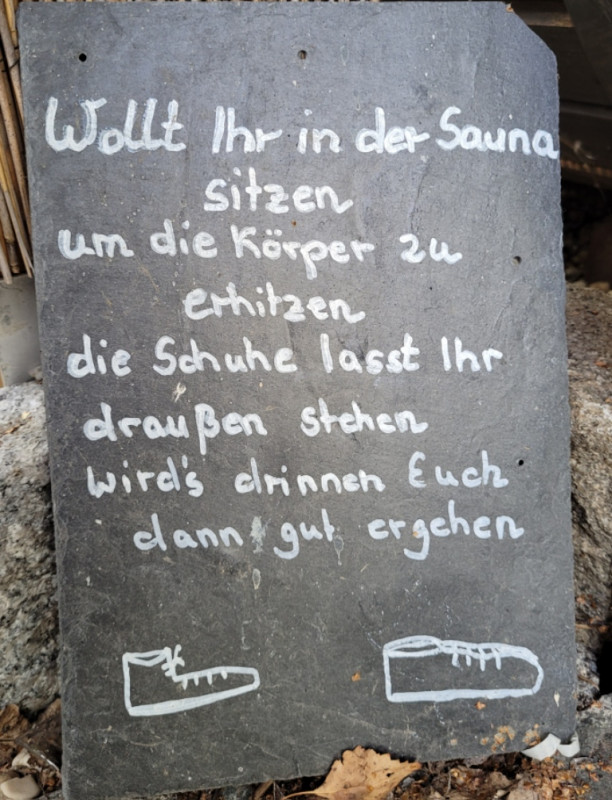 Wollt Ihr in der Sauna
sitzen
um die Körper zu
erhitzen
die Schuhe lasst Ihr
draußen stehen
wird's drinnen Euch
dann gut ergehen